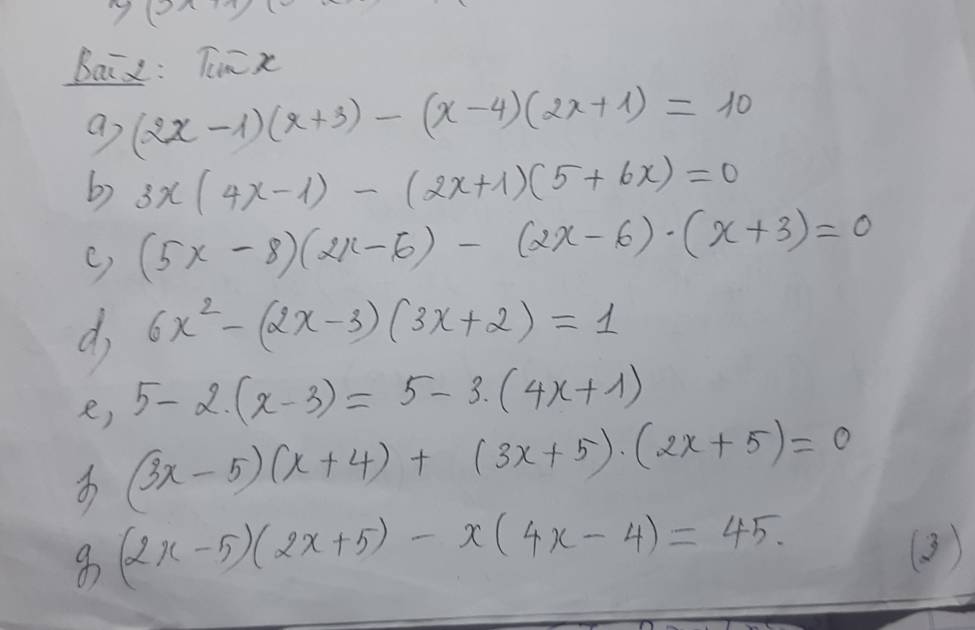 Bài 2: Tìm x
a, (2x - 1)(x + 3) - (x - 4)(2x + 1) = 10
b, 3x(4x - 1) - (2x + 1)(5 + 6x) = 0
c, (5x - 8)(2x - 6) - (2x - 6).(x + 3) = 0
d, 6x² - (2x - 3)(3x + 2) = 1
e, 5 - 2.(x - 3) = 5 - 3.(4x + 1)
f, (3x - 5)(x + 4) + (3x + 5).(2x + 5) = 0
g, (2x - 5)(2x + 5) - x(4x - 4) = 45.
(3)